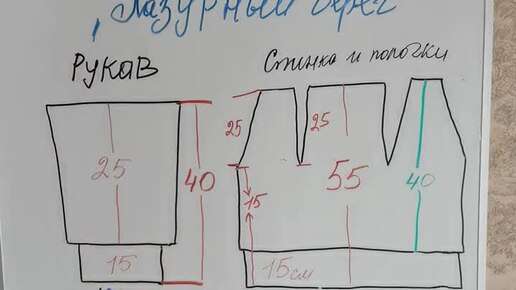 "Лазурный берег
Рукав
Спинка и полочки
25
25
25
40
55
40
15
15
15см